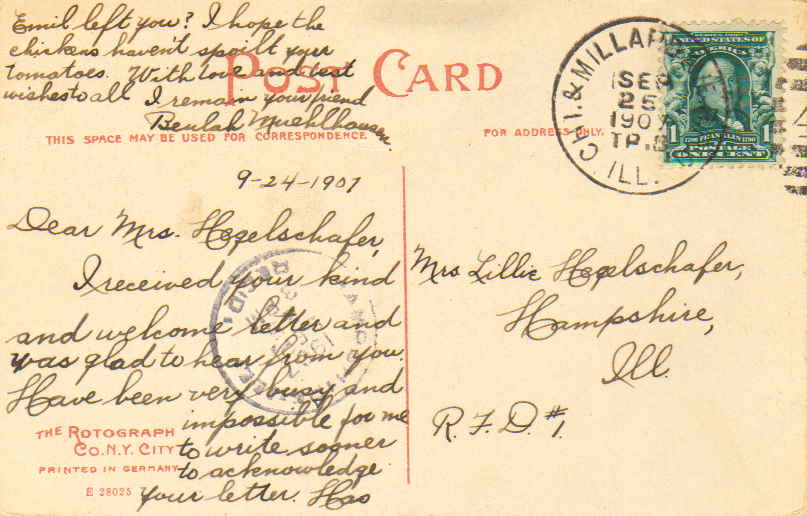 Emil left you? I hope the
chickens haven't spoilt your
tomatoes. With love and best
wishes to all I remain your friend
Beulah Muehlhausen.
POST CARD
THIS SPACE MAY BE USED FOR CORRESPONDENCE
FOR ADDRESS ONLY.
CHI. & MILLARD
SEP
25
1907
TR.
ILL.
1 POSTAGE 1
ONE CENT
9-24-1907
Dear Mrs. Hegelschafer,
I received your kind
and welcome letter and
was glad to hear from you.
Have been very busy and
impossible for me
to write sooner
to acknowledge
your letter. Has
Mrs Lillie Hegelschafer,
Hampshire,
Ill.
R. F. D. #1.
REC'D.
THE ROTOGRAPH
CO. N.Y. CITY
PRINTED IN GERMANY
E 28025